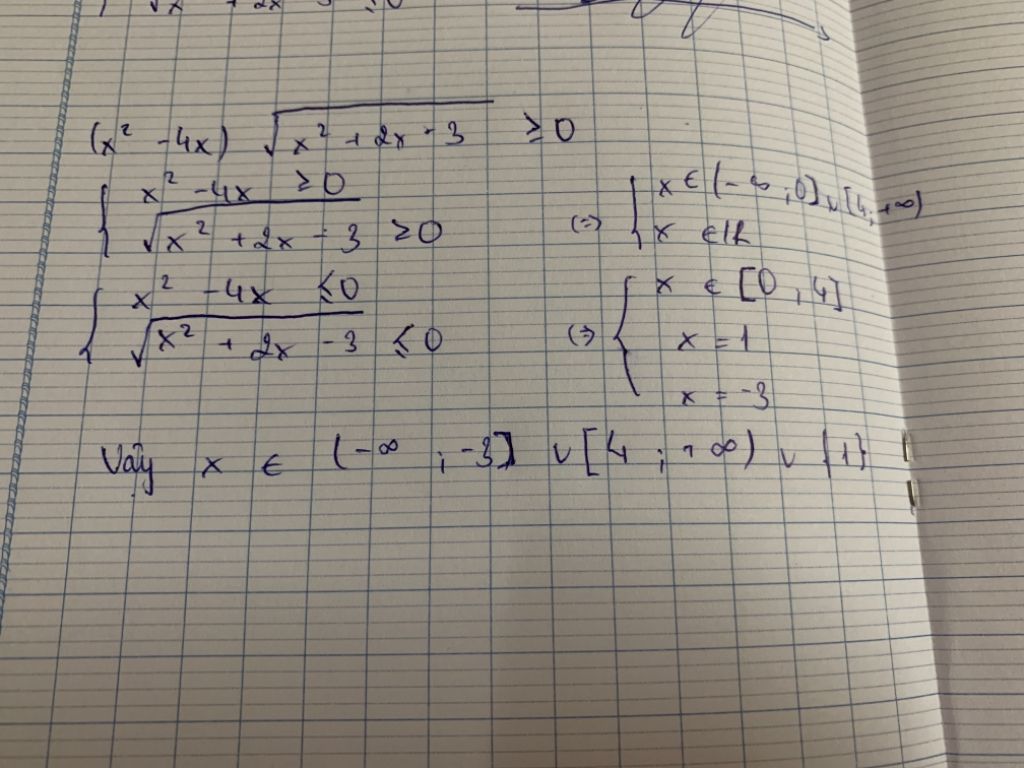 (x² - 4x) √(x² + 2x - 3) ≥ 0
{ x² - 4x ≥ 0
√(x² + 2x - 3) ≥ 0 (=) { x ∈ (-∞ ; 0] ∪ [4; +∞)
x ∈ ℝ
{ x² - 4x ≤ 0
√(x² + 2x - 3) ≤ 0 (=) { x ∈ [0 , 4]
x = 1
x = -3
Vậy x ∈ (-∞ ; -3] ∪ [4 ; +∞) ∪ {1}